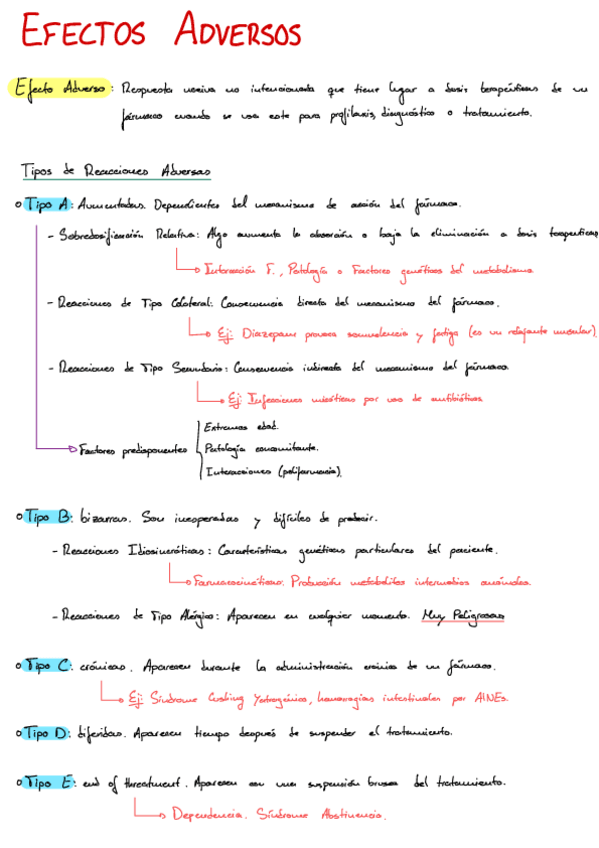 EFECTOS ADVERSOS
Efecto Adverso: Respuesta nociva no intencionada que tiene lugar a dosis terapéuticas de un
fármaco cuando se usa este para profilaxis, diagnóstico o tratamiento.
Tipos de Reacciones Adversas
Tipo A: Aumentadas. Dependientes del mecanismo de acción del fármaco.
- Sobredosificación Relativa: Algo aumenta la absorción o baja la eliminación a dosis terapéuticas
Interacción F., Patología o Factores genéticos del metabolismo
- Reacciones de Tipo Colateral: Consecuencia directa del mecanismo del fármaco.
Ej: Diazepam provoca somnolencia y fatiga (es un relajante muscular)
- Reacciones de Tipo Secundario: Consecuencia indirecta del mecanismo del fármaco.
Ej: Infecciones micóticas por uso de antibióticos.
Factores predisponentes
Extremos edad.
Patología concomitante.
Interacciones (polifarmacia).
Tipo B: bizarras. Son inesperadas y difíciles de predecir.
- Reacciones Idiosincráticas: Características genéticas particulares del paciente.
Farmacocinéticas. Producción metabolitos intermedios anómalos.
- Reacciones de Tipo Alérgico: Aparecen en cualquier momento. Muy Peligrosas
Tipo C: crónicas. Aparecen durante la administración crónica de un fármaco.
Ej: Síndrome Cushing Yatrogénico, hemorragias intestinales por AINEs.
Tipo D: diferidas. Aparecen tiempo después de suspender el tratamiento.
Tipo E: end of threatment. Aparecen con una suspensión brusca del tratamiento.
Dependencia. Síndrome Abstinencia.